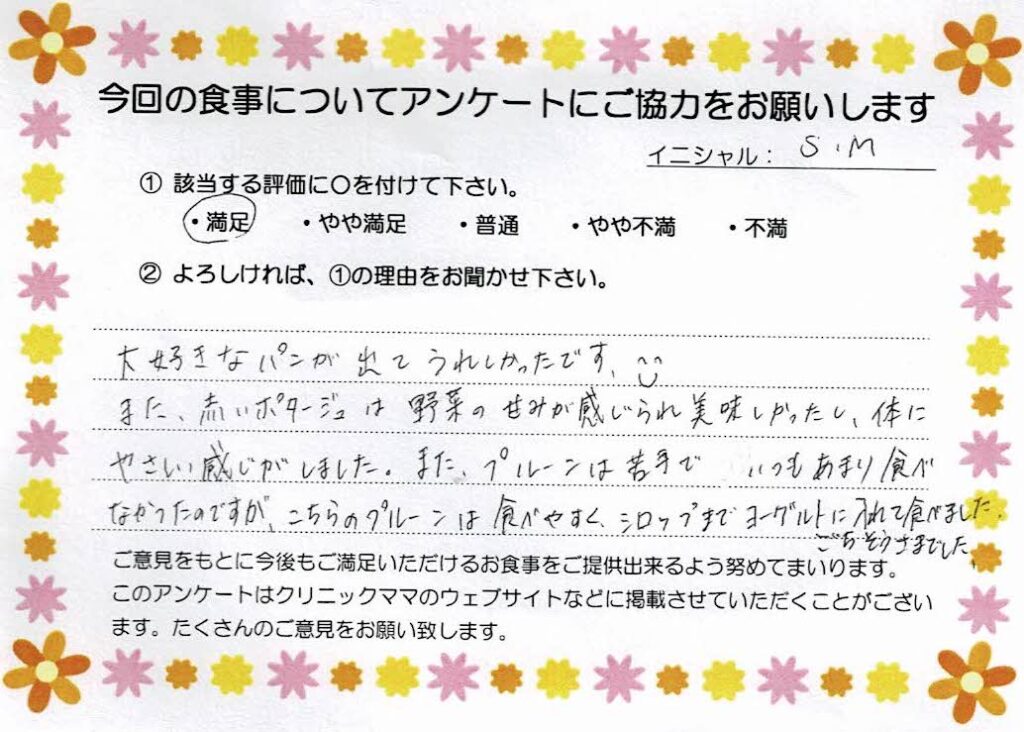 今回の食事についてアンケートにご協力をお願いします
イニシャル： S.M
① 該当する評価に〇を付けて下さい。
・満足 ・やや満足 ・普通 ・やや不満 ・不満
② よろしければ、①の理由をお聞かせ下さい。
大好きなパンが出てうれしかったです。
また、赤いポタージュは野菜の甘みが感じられ美味しかったし、体に
やさしい感じがしました。また、プルーンは苦手で いつもあまり食べ
なかったのですが、こちらのプルーンは食べやすく、シロップまでヨーグルトに入れて食べました。
ごちそうさまでした。
ご意見をもとに今後もご満足いただけるお食事をご提供出来るよう努めてまいります。
このアンケートはクリニックママのウェブサイトなどに掲載させていただくことがござい
ます。たくさんのご意見をお願い致します。